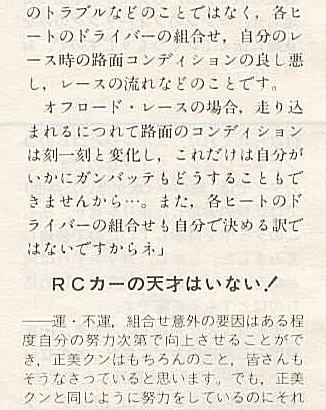 のトラブルなどのことではなく，各ヒ
ートのドライバーの組合せ，自分のレ
ース時の路面コンディションの良し悪
し，レースの流れなどのことです。
オフロード・レースの場合，走り込
まれるにつれて路面のコンディション
は刻一刻と変化し，これだけは自分が
いかにガンバッテもどうすることもで
きませんから…。また，各ヒートのド
ライバーの組合せも自分で決める訳で
はないですからネ」
RCカーの天才はいない！
——運・不運，組合せ意外の要因はある程
度自分の努力次第で向上させることがで
き，正美クンはもちろんのこと，皆さんも
そうなさっていると思います。でも，正美
クンと同じように努力をしているのにそれ